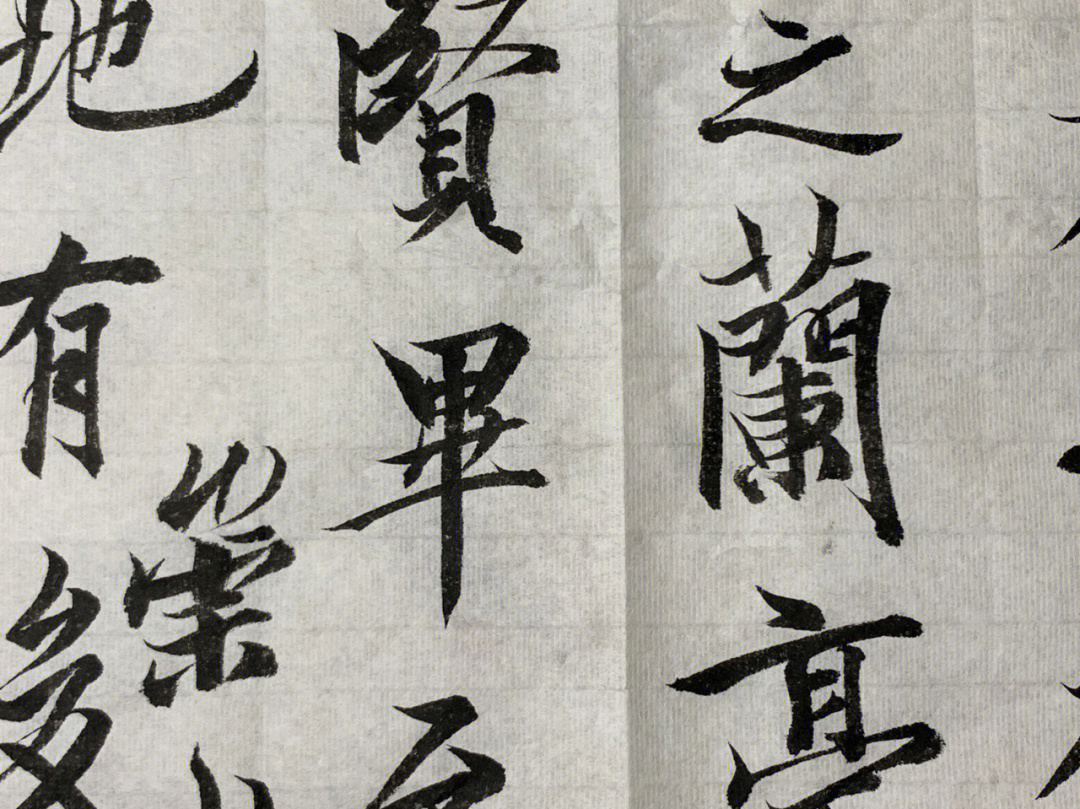 之蘭亭
賢畢至
崇山
地有峻